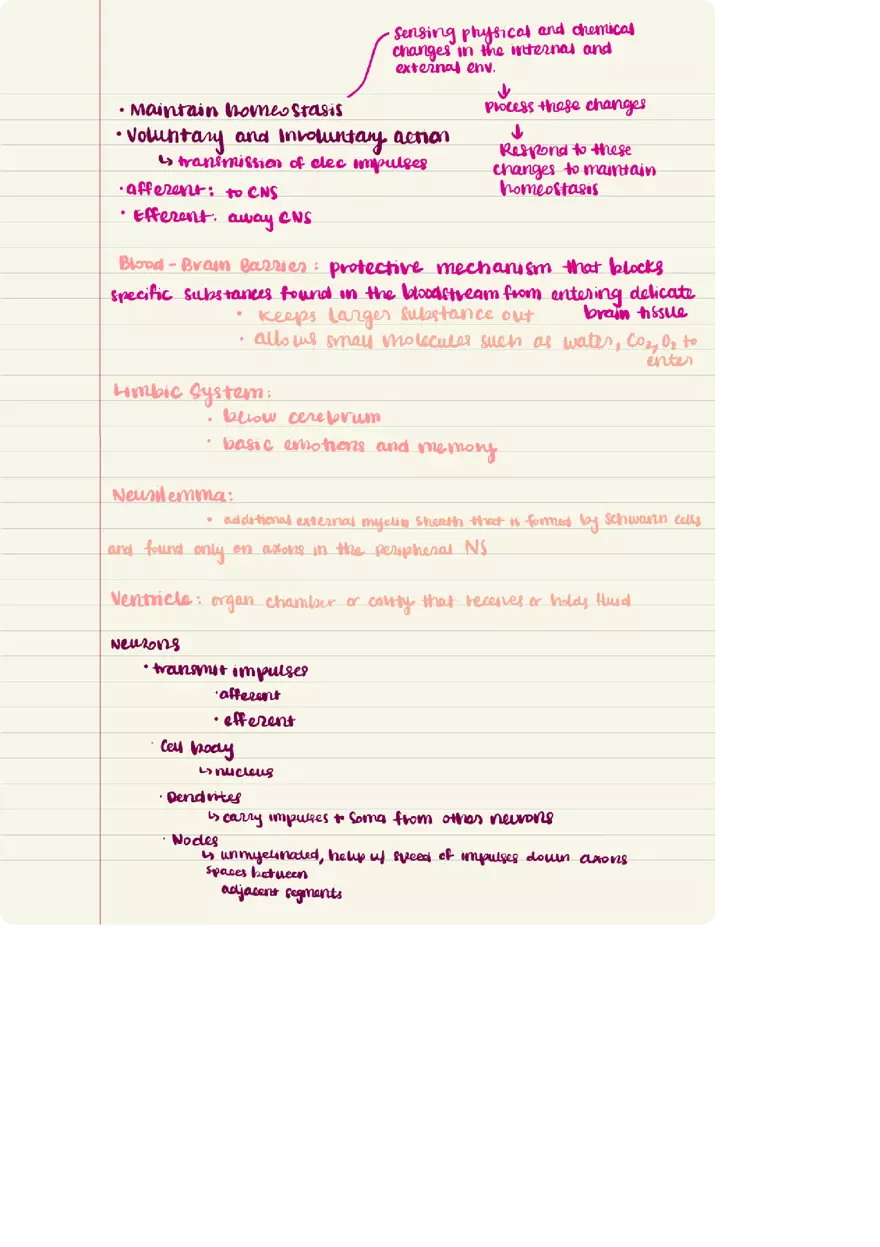 Sensing physical and chemical
changes in the internal and
external env.
↓
Process these changes
↓
Respond to these
changes to maintain
homeostasis
• Maintain homeostasis
• Voluntary and Involuntary action
↳ transmission of elec impulses
• afferent: to CNS
• Efferent. away CNS
Blood-Brain Barrier: protective mechanism that blocks
specific substances found in the bloodstream from entering delicate
brain tissue
• Keeps larger substance out
• allows small molecules such as water, CO2, O2 to
enter
Limbic System:
• below cerebrum
• basic emotions and memory
Neurilemma:
• additional external myelin sheath that is formed by schwann cells
and found only on axons in the peripheral NS
Ventricle: organ chamber or cavity that receives or holds fluid
Neurons
• transmit impulses
• afferent
• efferent
• Cell body
↳ nucleus
• Dendrites
↳ carry impulses to soma from other neurons
• Nodes
↳ unmyelinated, help w/ speed of impulses down axons
spaces between
adjacent segments